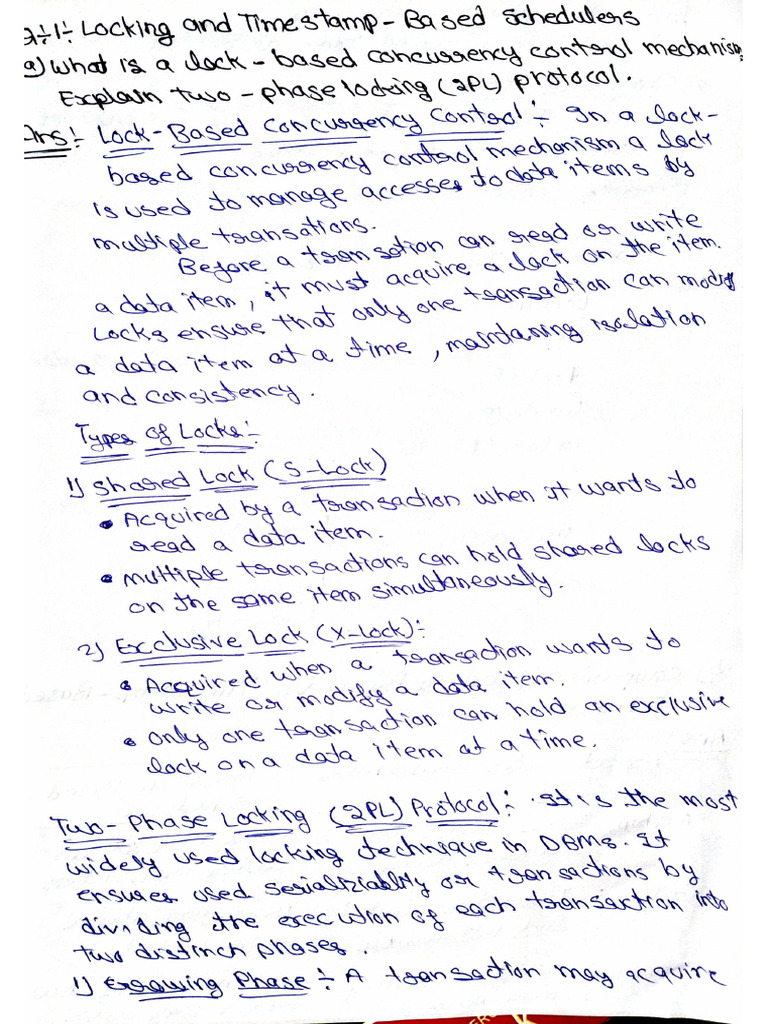 Q÷1÷ Locking and Timestamp-Based Schedulers
a) What is a lock-based concurrency control mechanism
Explain two-phase locking (2PL) protocol.
Ans:- Lock-Based Concurrency Control:- In a lock-
based concurrency control mechanism a lock
is used to manage accesses to data items by
multiple transations.
Before a transation can read or write
a data item, it must acquire a lock on the item.
Locks ensure that only one transaction can modify
a data item at a time, maintaning isolation
and consistency.
Types of Locks:-
1) Shared Lock (S-Lock)
• Acquired by a transaction when it wants to
read a data item.
• multiple transactions can hold shared locks
on the same item simultaneously.
2) Exclusive Lock (X-Lock):-
• Acquired when a transaction wants to
write or modify a data item.
• only one transaction can hold an exclusive
lock on a data item at a time.
Two-Phase Locking (2PL) Protocol:- It is the most
widely used locking technique in DBMS. It
ensures used serializiablity or transactions by
dividing the execution of each transaction into
two distinch phases.
1) Growing Phase ÷ A transaction may acquire